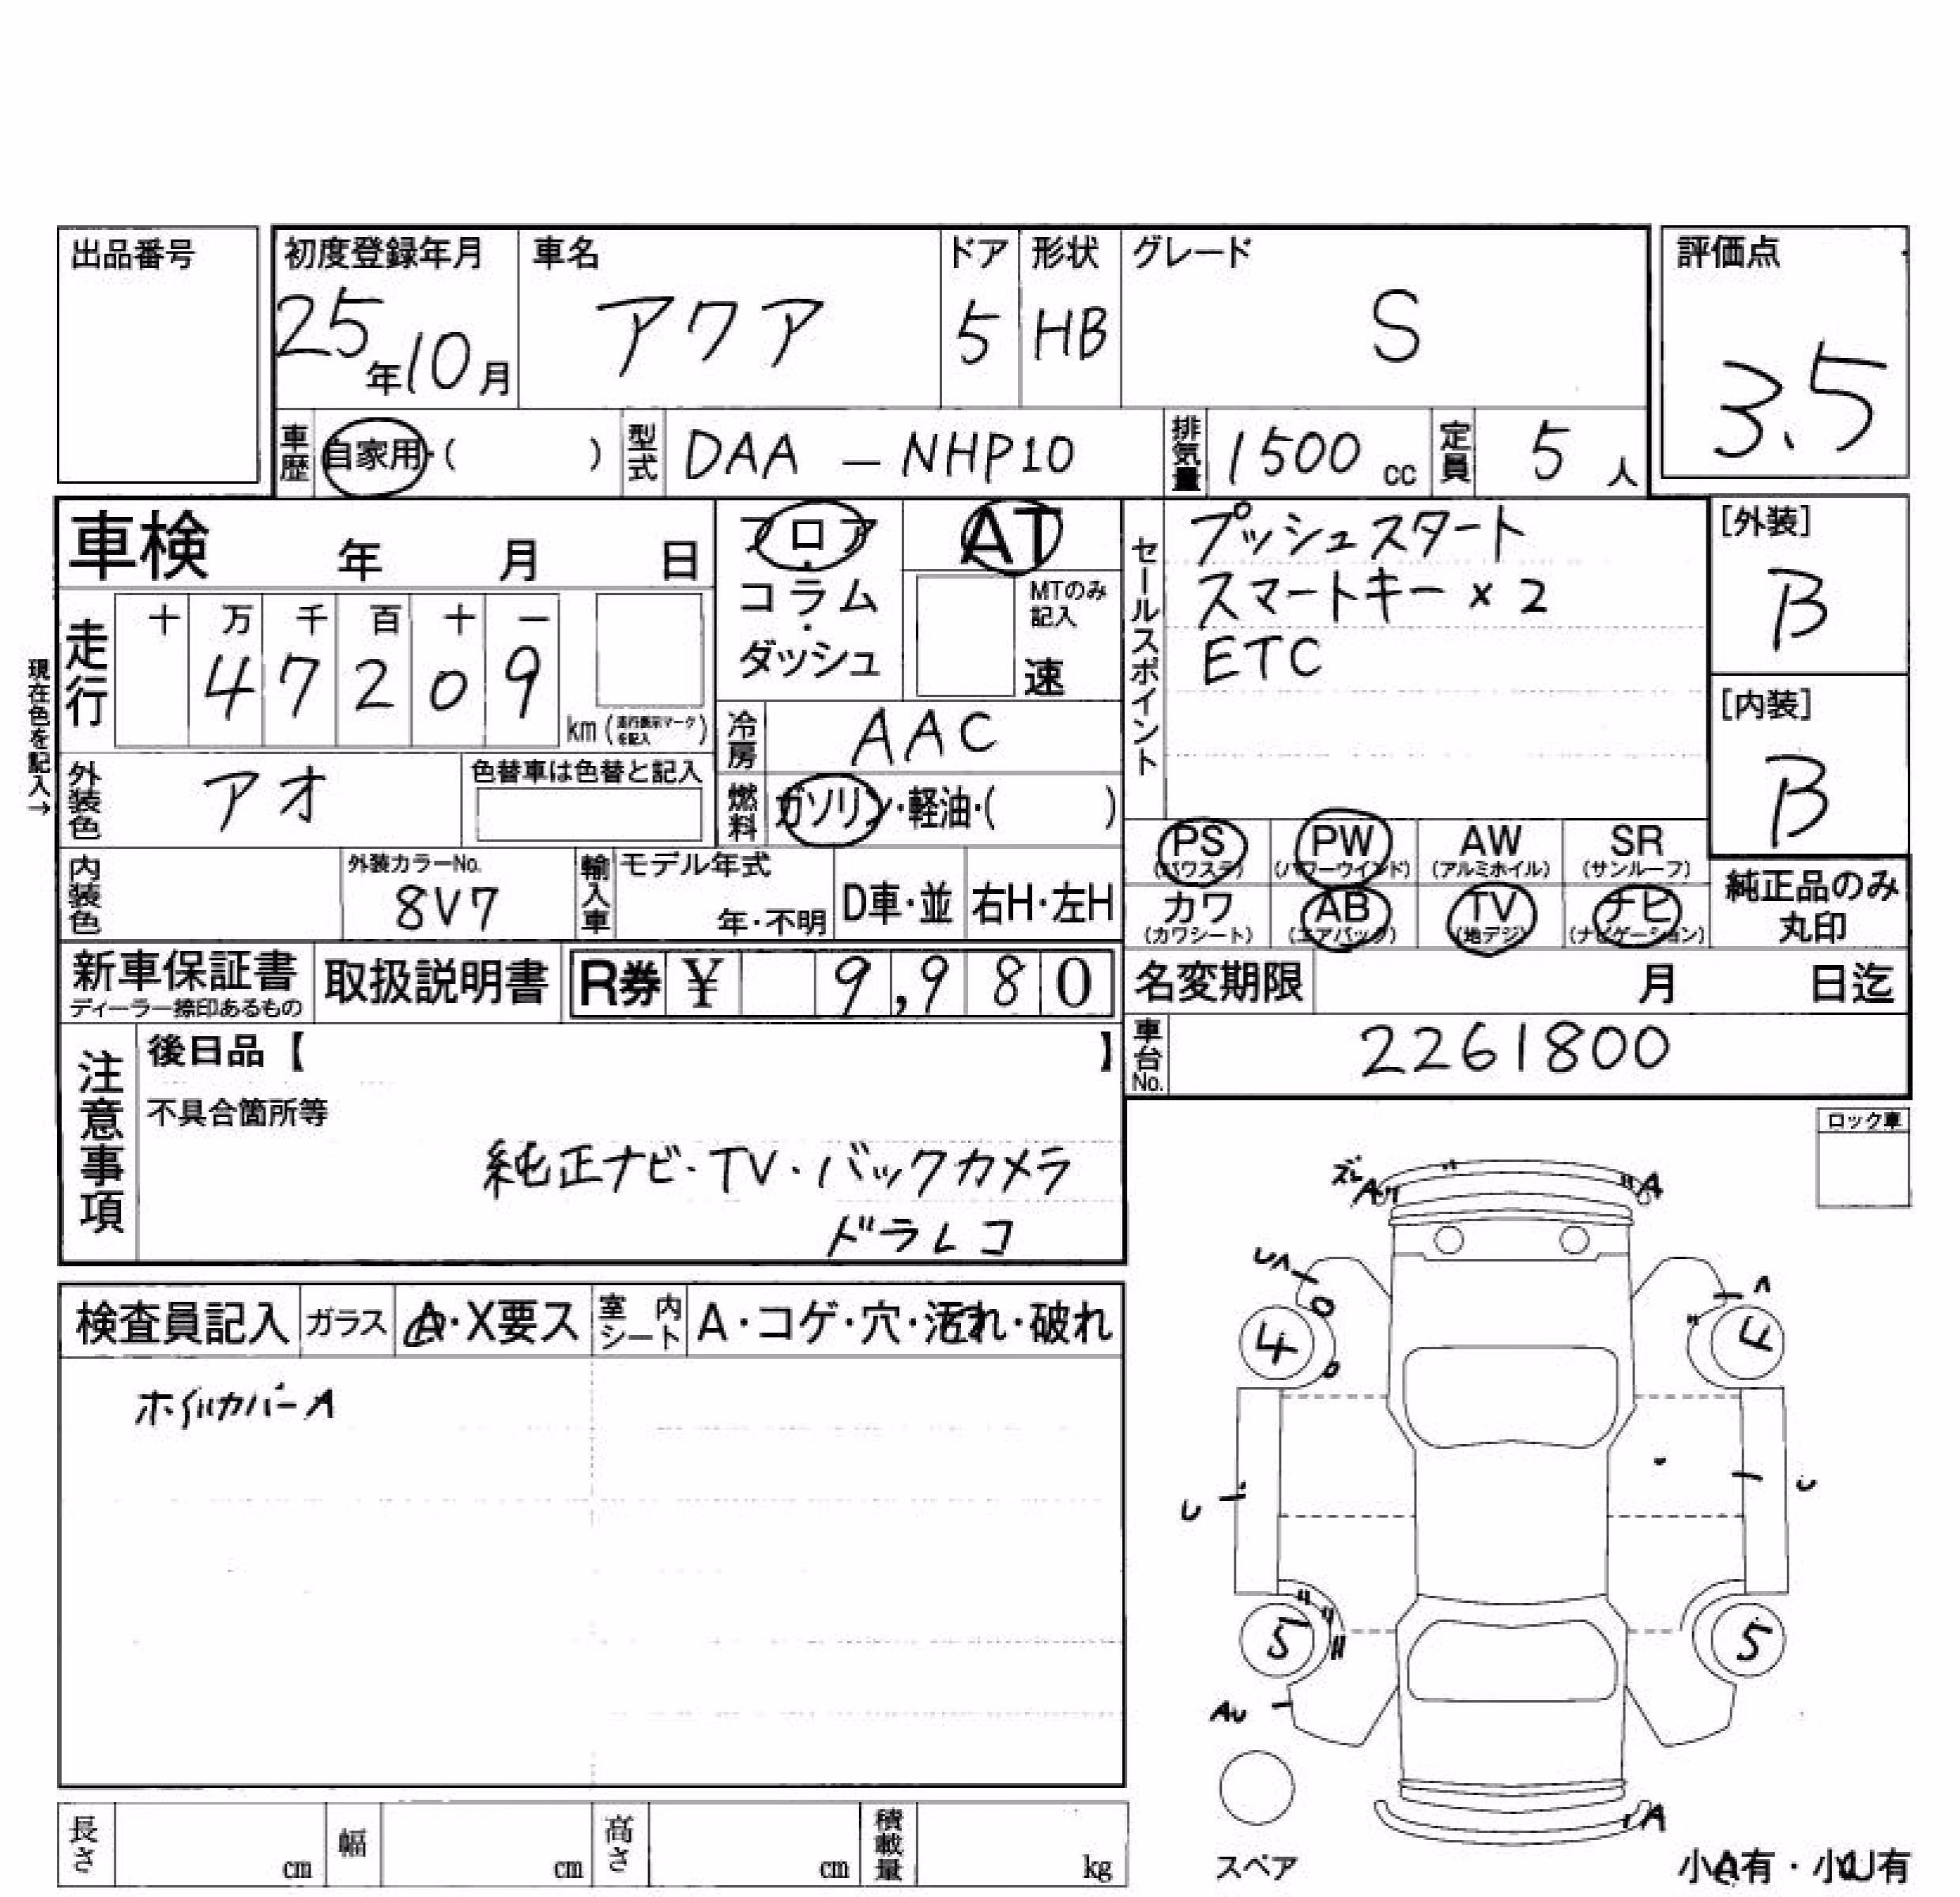 出品番号
初度登録年月 車名 ドア 形状 グレード 評価点
25年10月 アクア 5 HB S 3.5
車歴 自家用・( ) 型式 DAA-NHP10 排気量 1500cc 定員 5人
車検 年 月 日
フロア・コラム・ダッシュ
AT
MTのみ記入
速
セールスポイント
プッシュスタート
スマートキー×2
ETC
[外装]
B
[内装]
B
現在色を記入→
走行 十 万 千 百 十 一
4 7 2 0 9
km(走行表示マークを記入)
冷房 AAC
外装色 アオ 色替車は色替と記入
燃料 ガソリン・軽油・( )
PS (パワステ) PW (パワーウインド) AW (アルミホイル) SR (サンルーフ)
カワ (カワシート) AB (エアバック) TV (地デジ) ナビ (ナビゲーション)
純正品のみ
丸印
内装色 外装カラーNo. 8V7 輸入車 モデル年式 年・不明 D車・並 右H・左H
新車保証書 取扱説明書 R券 ¥ 9,980
ディーラー捺印あるもの
名変期限 月 日迄
車台No. 2261800
注意事項
後日品【 】
不具合箇所等
純正ナビ・TV・バックカメラ
ドラレコ
ロック車
検査員記入 ガラス A・X要ス 室内シート A・コゲ・穴・汚れ・破れ
ホイルカバーA
ズレ A A
U
4 4
U U
5 5
AU
A
スペア
小A有・小U有
長さ cm 幅 cm 高さ cm 積載量 kg